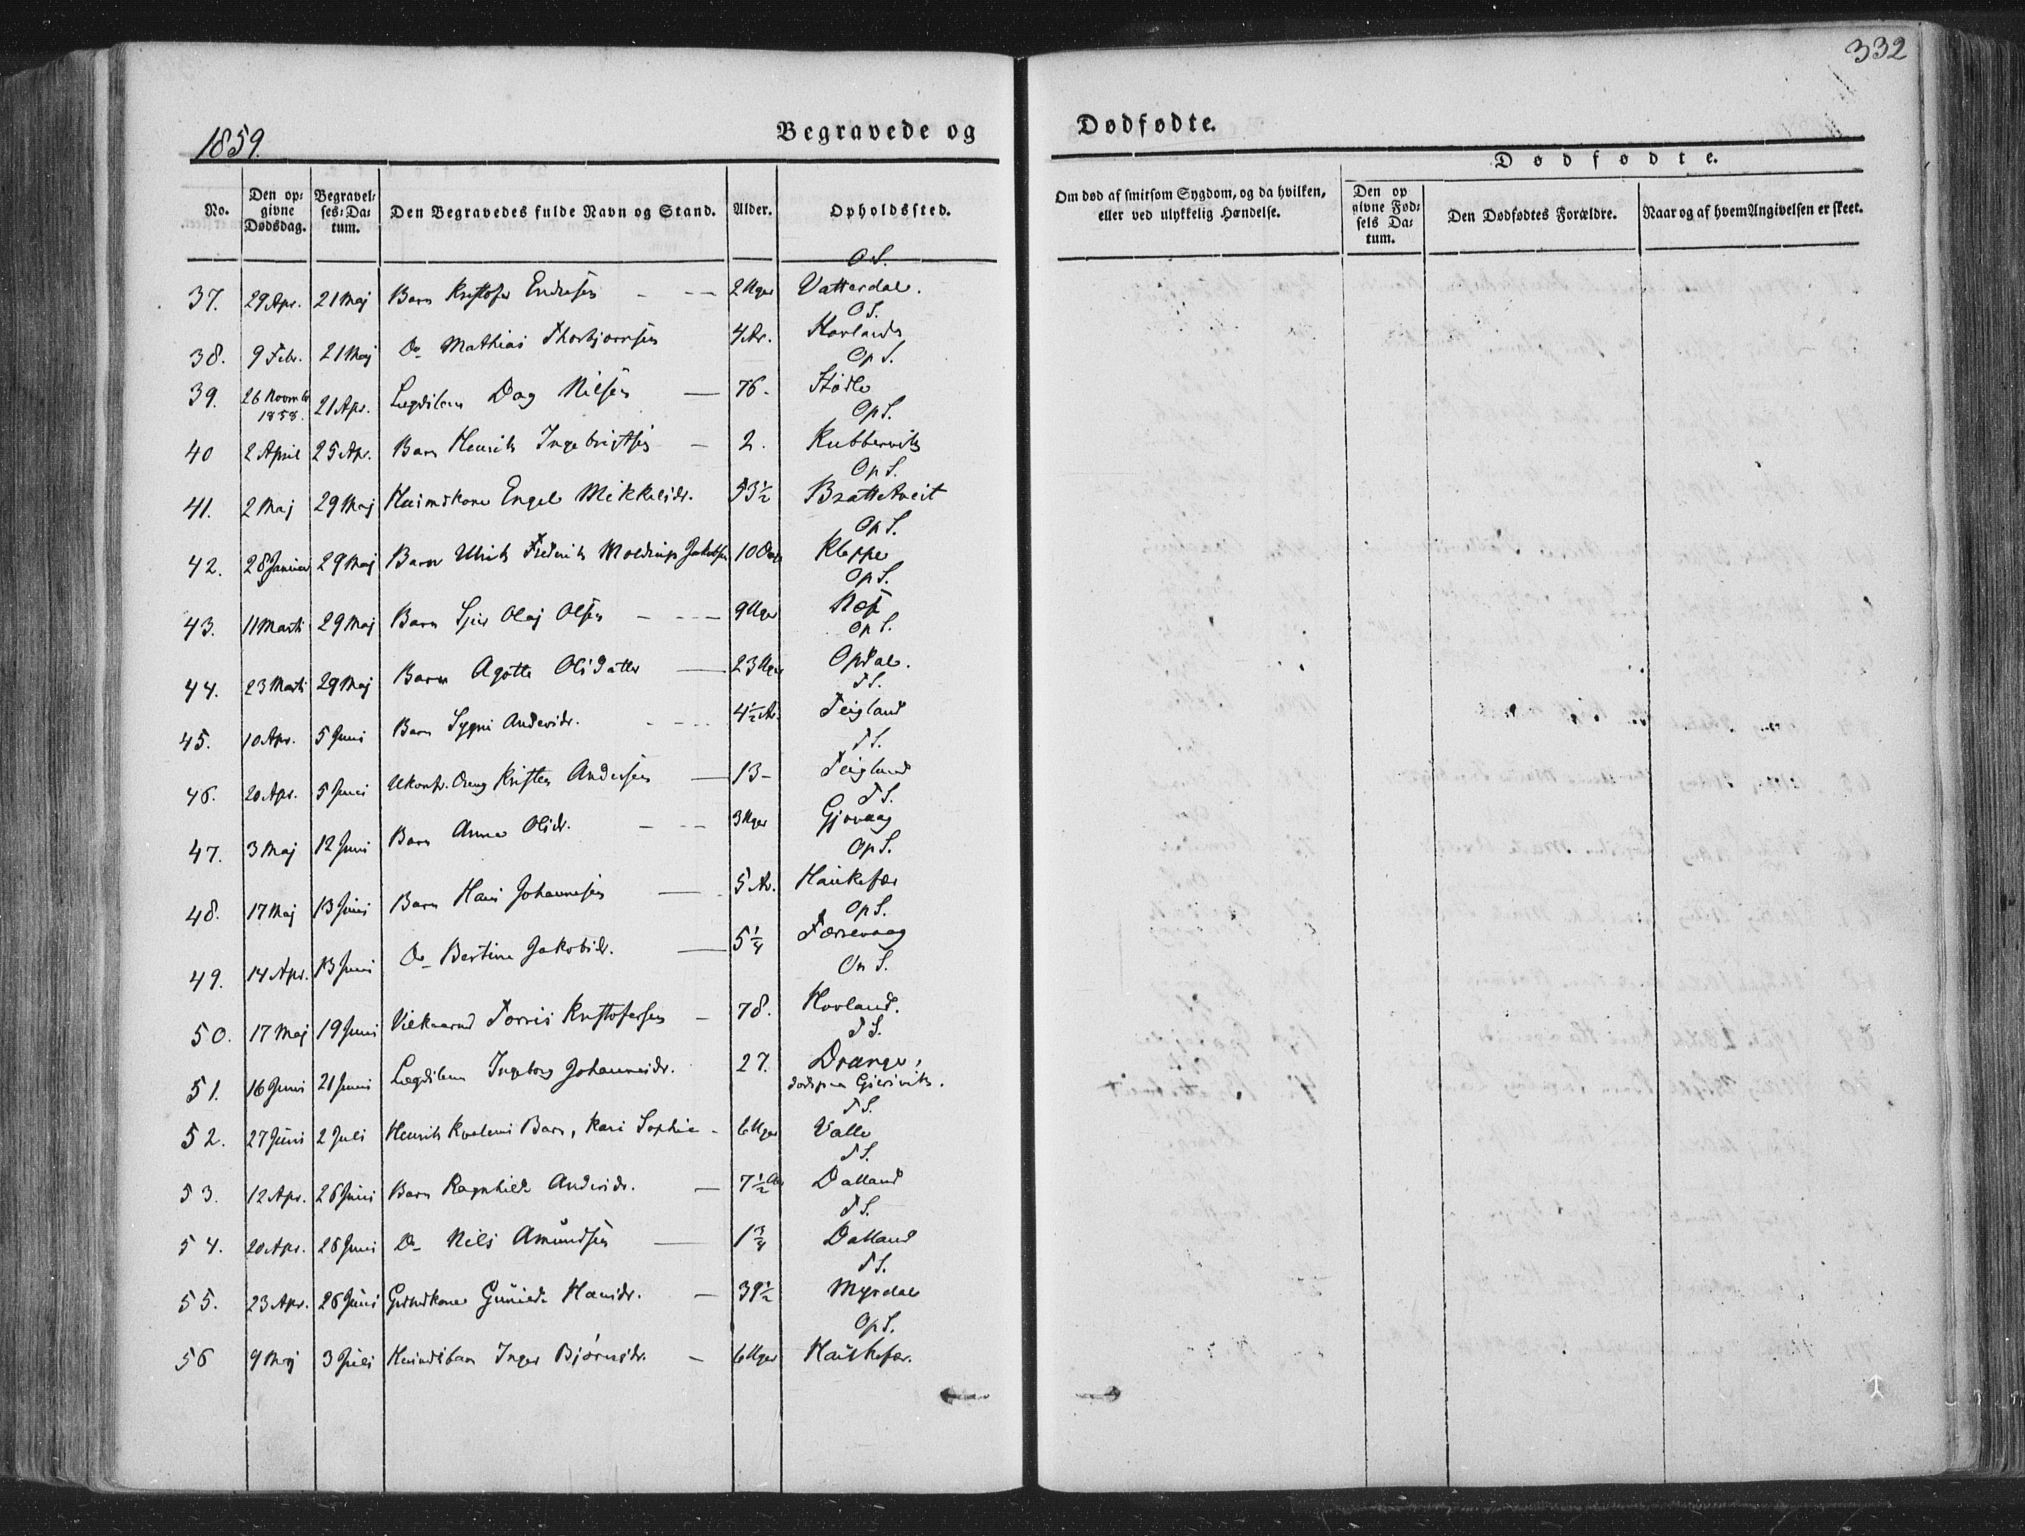 332
1859.
Begravede og
Dødfødte.
Dødfødte.
No.
Den opgivne Dødsdag.
Begravelses-Datum.
Den Begravedes fulde Navn og Stand.
Alder.
Opholdssted.
Om død af smitsom Sygdom, og da hvilken, eller ved ulykkelig Hændelse.
Den opgivne Fødsels Datum.
Den Dødfødtes Forældre.
Naar og af hvem Angivelsen er skeet.
O S.
37. 29 Apr. 21 Maj Barn Kristofer Endresen - - - 2 Uger Vatterdal.
O S.
38. 9 Febr. 21 Maj Do Mathias Thorbjørnsen 4 Ar.
Op S.
39. 26 Novmbr 1858. 21 Apr. Lægdslem Dag Nilsen — 76. Stødle
Op S.
40 2 April 25 Apr. Barn Henrik Ingebrigtsen — 2. Kubbervik
Op S.
41. 2 Maj 29 Maj Huusmdskone Engel Mikkelsdr. 53 1/2 Bratthveit
Op S.
42. 28 Januar 29 Maj Barn Ulrik Frederik Moldrup Jakobsen 10 Dage Kleppe
Op S.
43. 11 Marts 29 Maj Barn Sjur Olai Olsen - - - 9 Uger Næs
Op S.
44. 23 Marts 29 Maj Barn Agotte Olsdatter — 23 Uger Opdal.
F S.
45. 10 Apr. 5 Juni Barn Sygni Andersdr. - - - 4 1/2 Ar. Teigland
F S.
46. 20 Apr. 5 Juni Ukonf. Dreng Kristen Andersen — 13 - Teigland
F S.
47. 3 Maj 12 Juni Barn Anna Olsdr. - - - 3 Uger Gjovaag
Op S.
48. 17 Maj 13 Juni Barn Hans Johannesen — 5 Ar. Haukefær
Op S.
49. 14 Apr. 13 Juni Do Bertine Jakobsdr. — 5 1/4 Færevaag
On S.
50. 17 Maj 19 Juni Vilkaarmd Torris Kristofersen — 78. Hovland.
F S.
51. 16 Juni 21 Juni Lægdslem Ingeborg Johannesdr. 27. Drange,
dødspaa Gjersvik.
F S.
52. 27 Juni 2 Juli Henrik Kvelens Barn, Kari Sophie - 6 Uger Valle
F S.
53. 12 Apr. 26 Juni Barn Ragnhilde Andersdr. — 7 1/2 Ar Dalland
F S.
54. 20 Apr. 26 Juni Do Nils Amundsen — 1 3/4 Dalland
F S.
55. 23 Apr. 26 Juni Grdmdkone Gunild Hansdr. — 39 1/2 Myrdal
Op S.
56 9 Maj 3 Juli Huusmdsbarn Inger Bjørnsdr. — 6 Uger Haukefær.